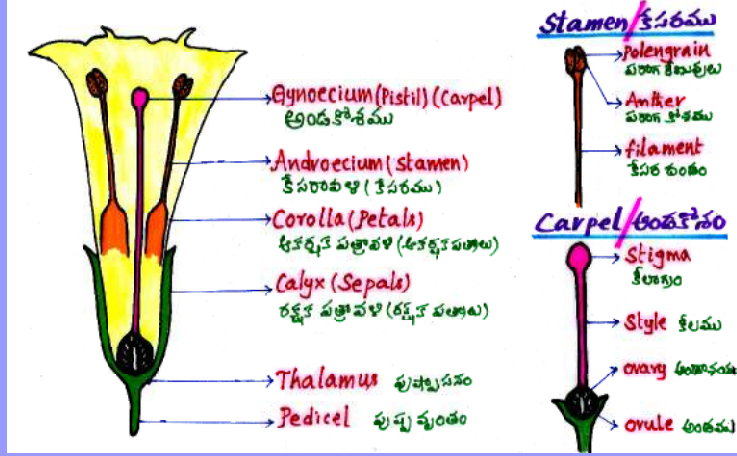 Gynoecium (Pistil) (Carpel)
అండకోశము
Androecium (Stamen)
కేసరావళి (కేసరము)
Corolla (Petals)
ఆకర్షక పత్రావళి (ఆకర్షక పత్రాలు)
Calyx (Sepals)
రక్షక పత్రావళి (రక్షక పత్రాలు)
Thalamus పుష్పాసనం
Pedicel పుష్ప వృంతం
Stamen/కేసరము
Polengrain
పరాగ రేణువులు
Anther
పరాగ కోశము
filament
కేసర దండం
Carpel/అండకోశం
Stigma
కీలాగ్రం
Style కీలము
ovary అండాశయం
ovule అండము